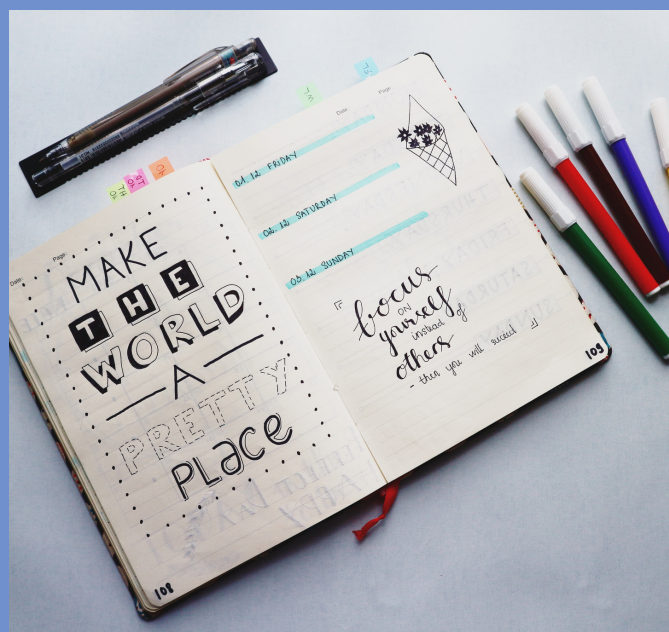 Date:
Page:
MAKE
THE
WORLD
A
PRETTY
PLACE
108
Date:
Page:
01. 12 FRIDAY
02. 12 SATURDAY
03. 12 SUNDAY
focus
ON
yourself
instead of
others
- then you will succeed
109